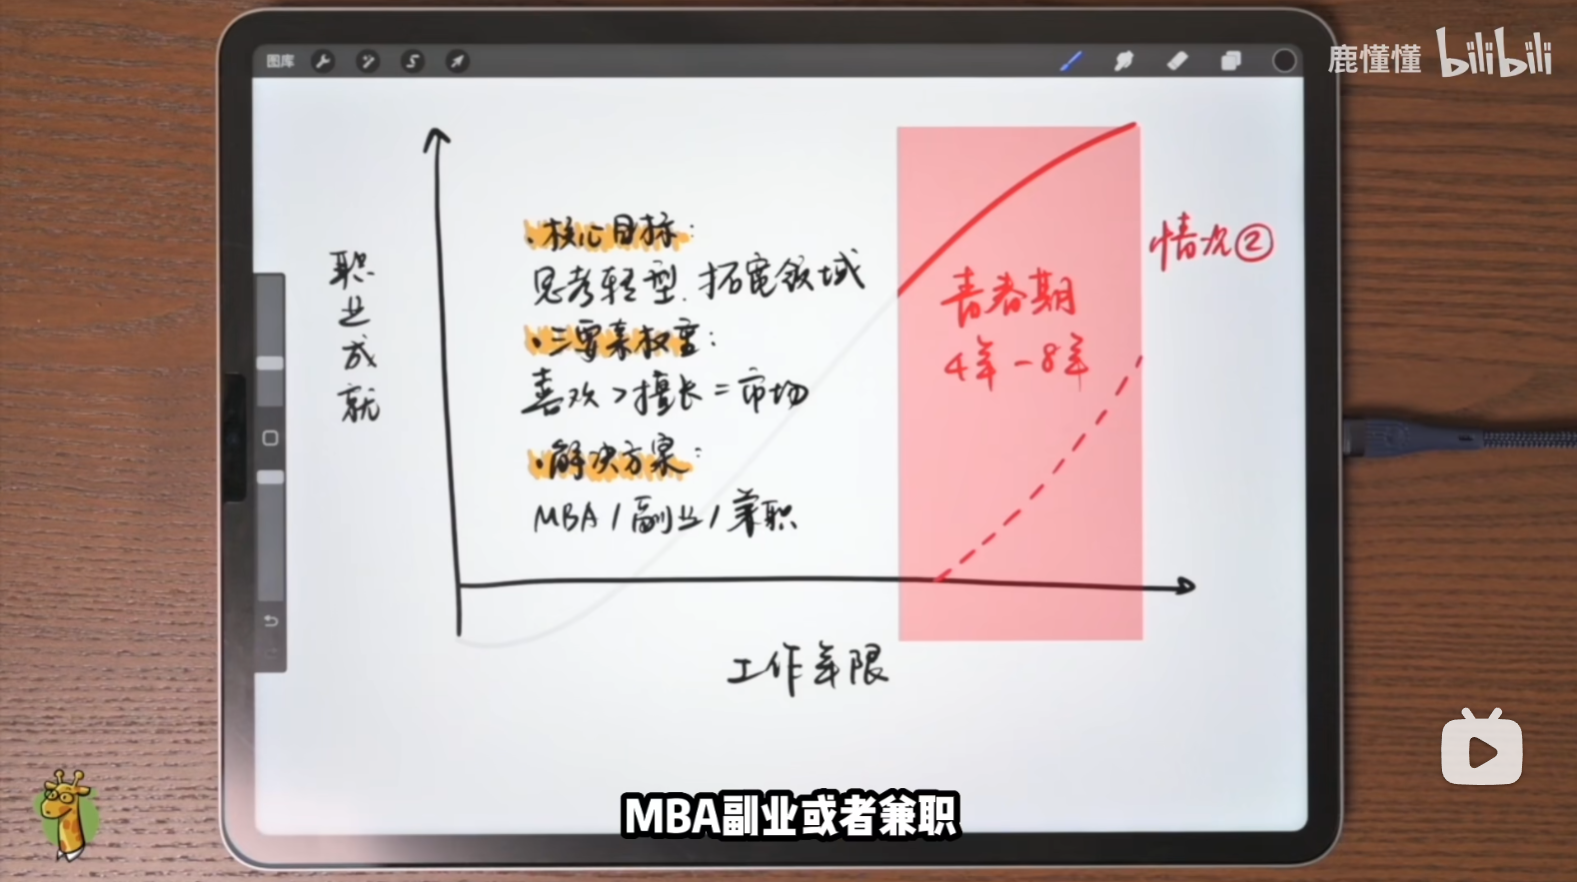 图库
鹿懂懂 bilibili
职业成就
·核心目标:
思考转型.拓宽领域
·三要素权重:
喜欢>擅长=市场
·解决方案:
MBA/副业/兼职
情况②
青春期
4年-8年
工作年限
MBA副业或者兼职